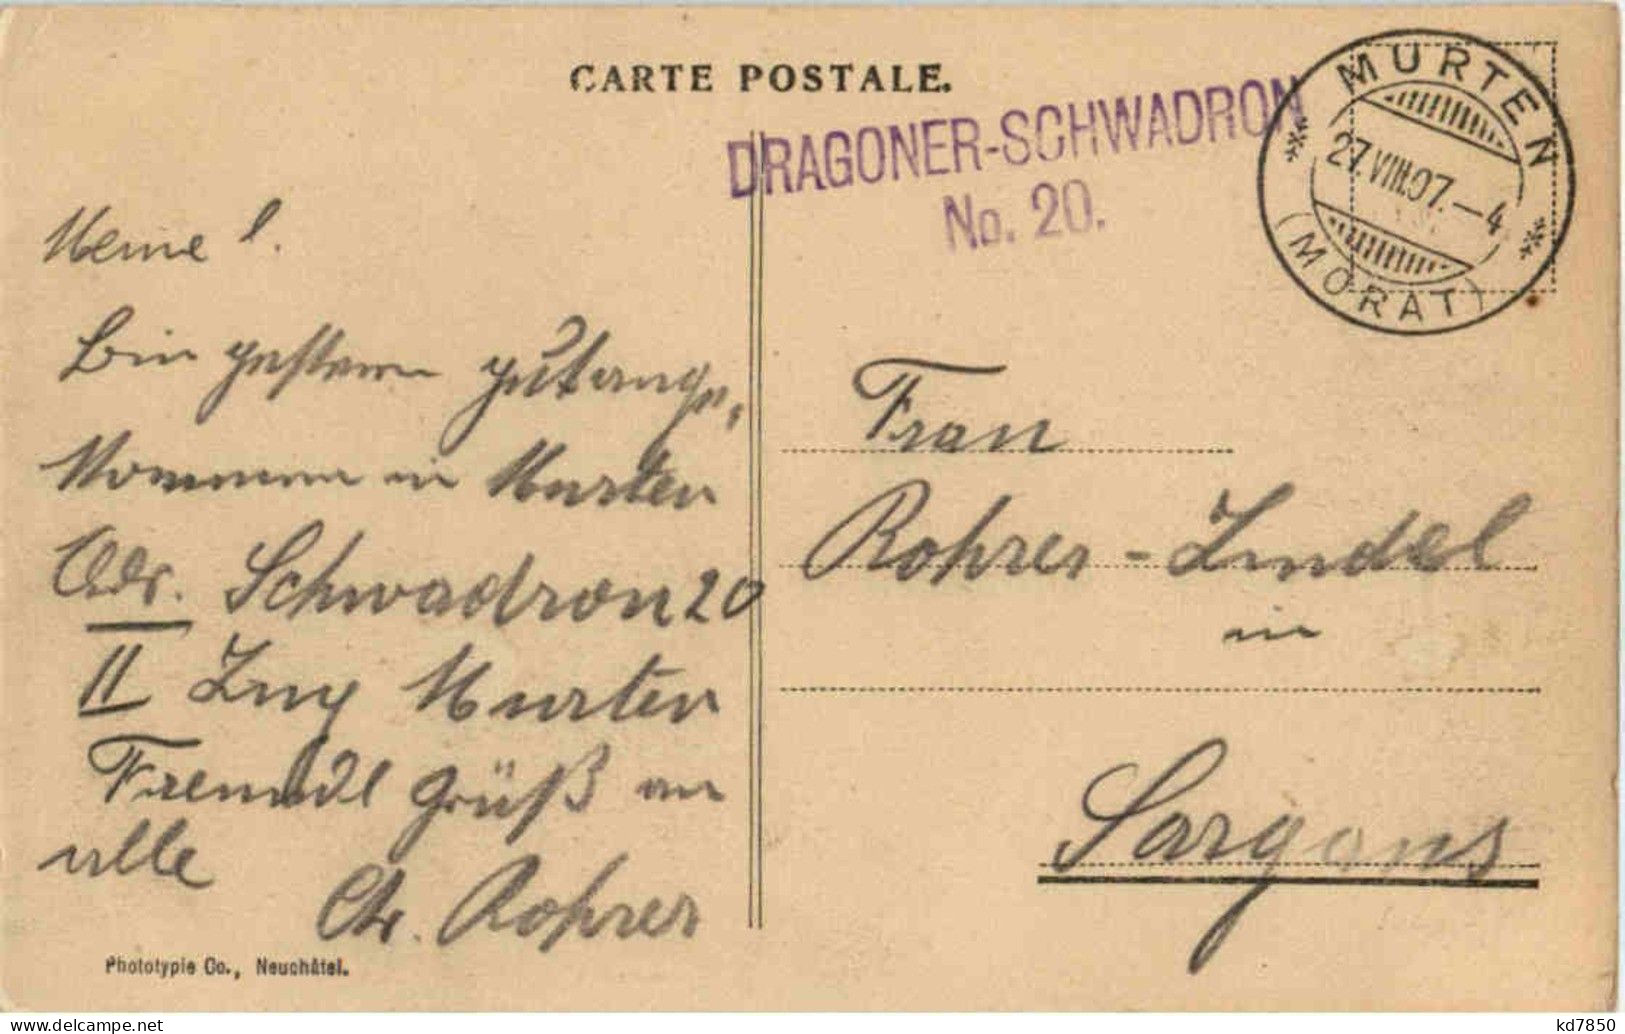 CARTE POSTALE.
DRAGONER-SCHWADRON
No. 20.
MURTEN
27.VIII.07.–4
(MORAT)
Meine l.
Bin gestern gut ange,
kommen in Murten
Adr. Schwadron 20
II Zug Murten
Freundl Grüß an
alle
Chr. Rohrer
Frau
Rohrer-Zindel
in
Sargans
Phototypie Co., Neuchâtel.
kd7850